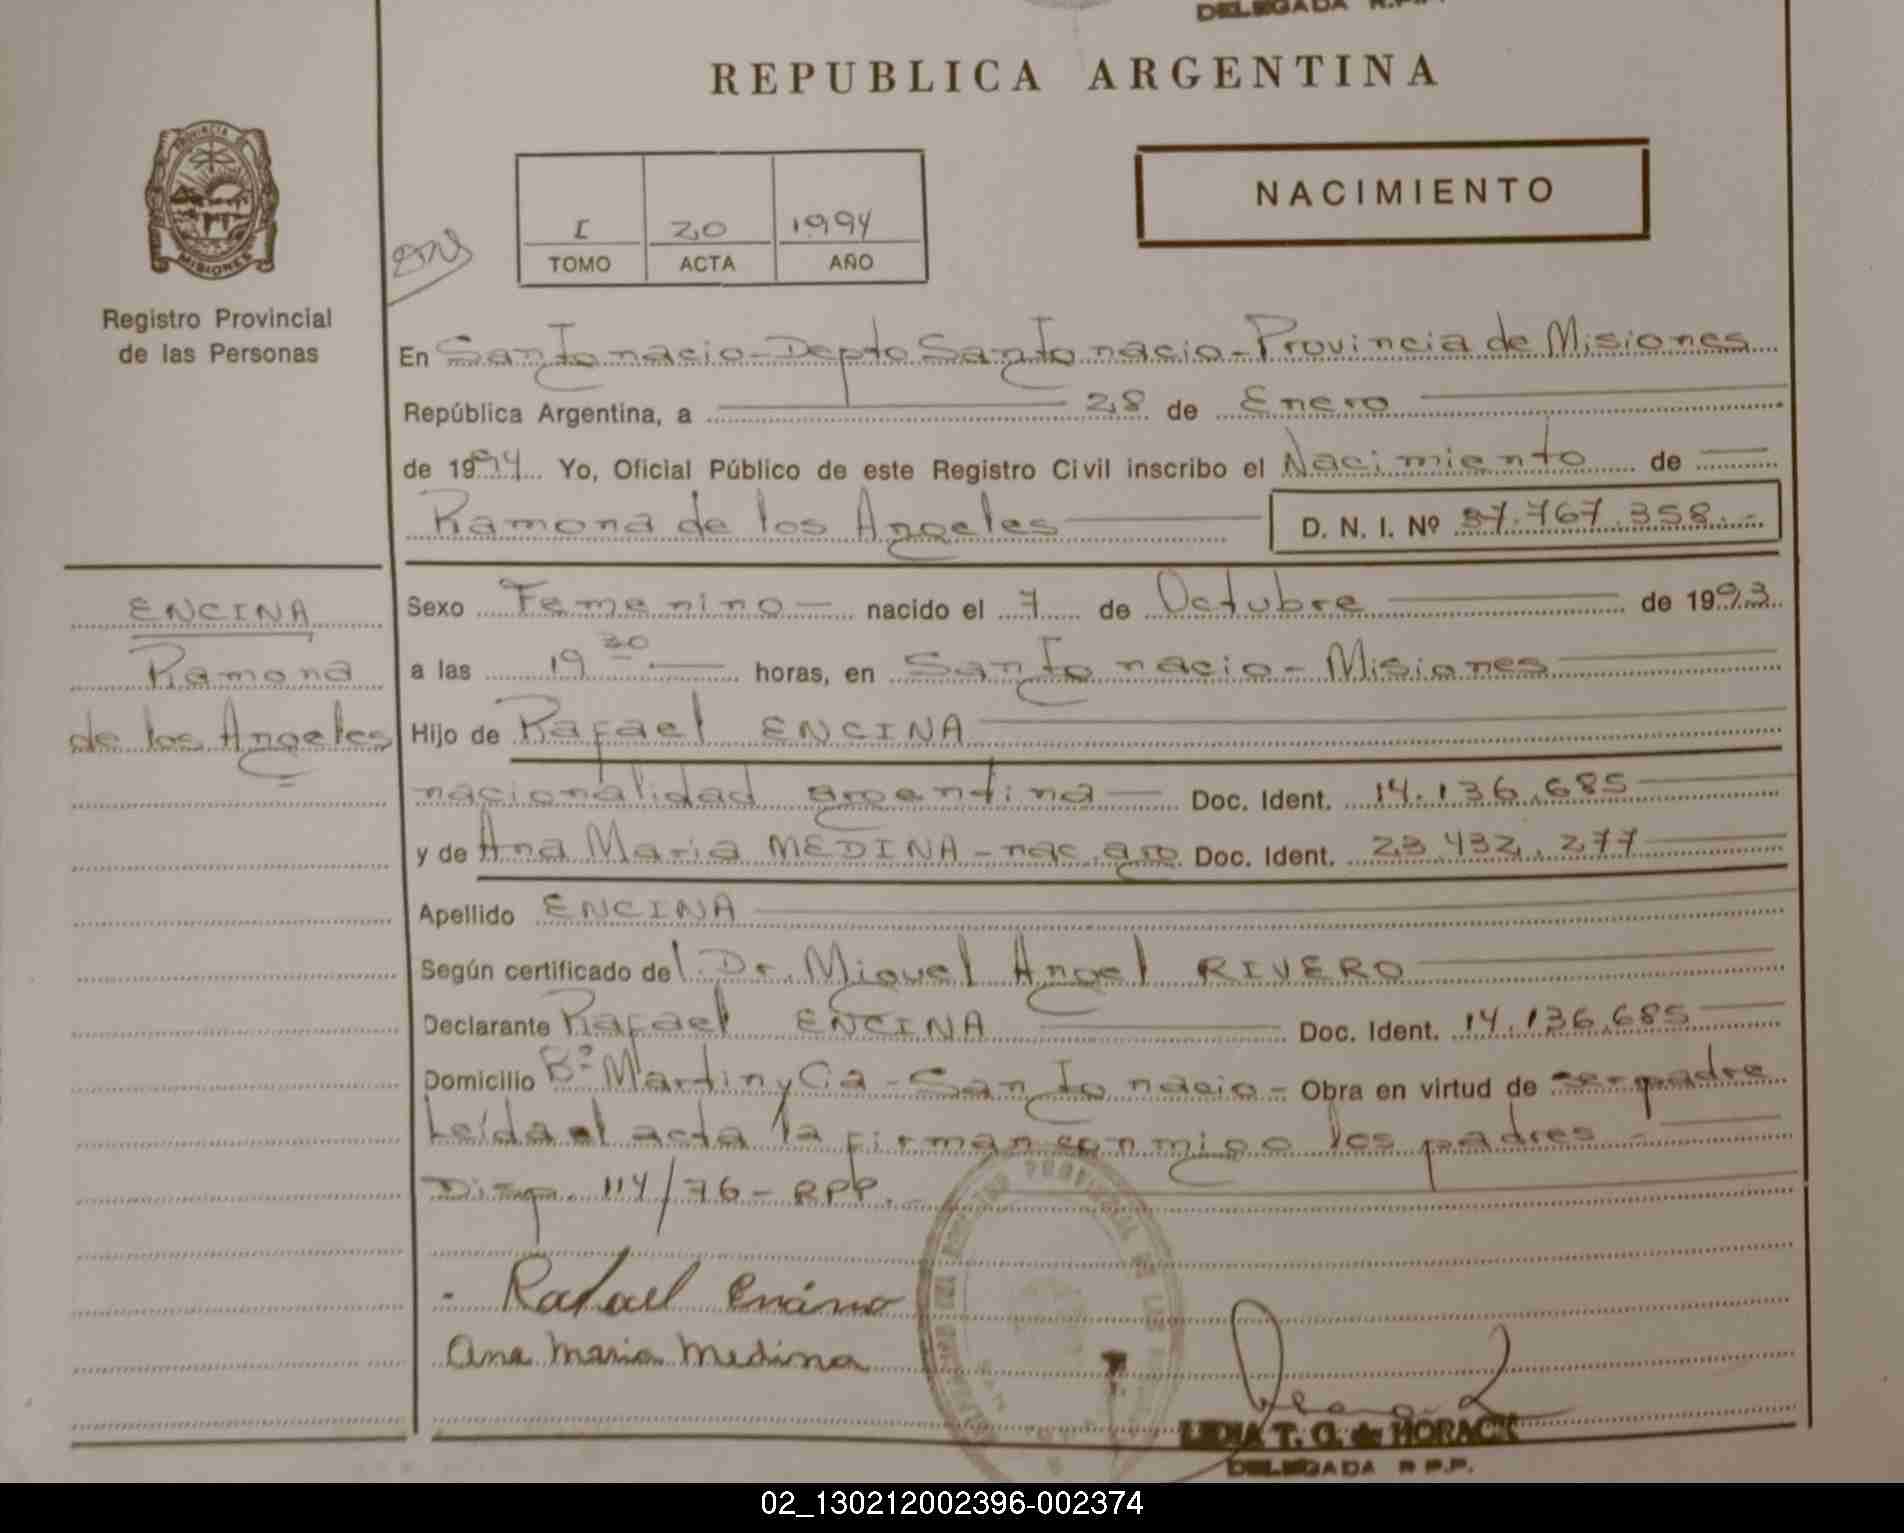 DELEGADA R.P.P.
REPUBLICA ARGENTINA
PROVINCIA DE
MISIONES
Registro Provincial
de las Personas
I 20 1994
TOMO ACTA AÑO
NACIMIENTO
En San Ignacio - Depto San Ignacio - Provincia de Misiones
República Argentina, a 28 de Enero
de 1994 Yo, Oficial Público de este Registro Civil inscribo el Nacimiento de
Ramona de los Angeles D. N. I. Nº 37.767.358.-
ENCINA
Ramona
de los Angeles
Sexo Femenino - nacido el 7 de Octubre de 1993
a las 19 30 horas, en San Ignacio - Misiones
Hijo de Rafael ENCINA
nacionalidad argentina Doc. Ident. 14.136.685
y de Ana Maria MEDINA - nac. arg. Doc. Ident. 23.432.277
Apellido ENCINA
Según certificado del Dr. Miguel Angel RIVERO
Declarante Rafael ENCINA Doc. Ident. 14.136.685
Domicilio Bº Martin y Cia - San Ignacio - Obra en virtud de ser padre
Leída el acta la firman conmigo los padres -
Disp. 114/76 - RPP.
Rafael Encina
Ana Maria Medina
LIDIA T. G. de HORACK
DELEGADA R.P.P.
02_130212002396-002374